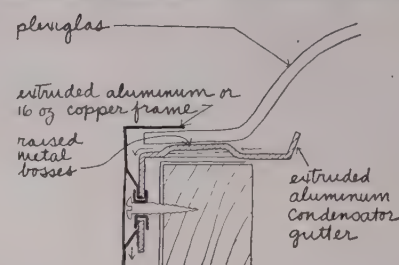 plexiglas
extruded aluminum or
16 oz copper frame
raised
metal
bosses
extruded
aluminum
condensator
gutter